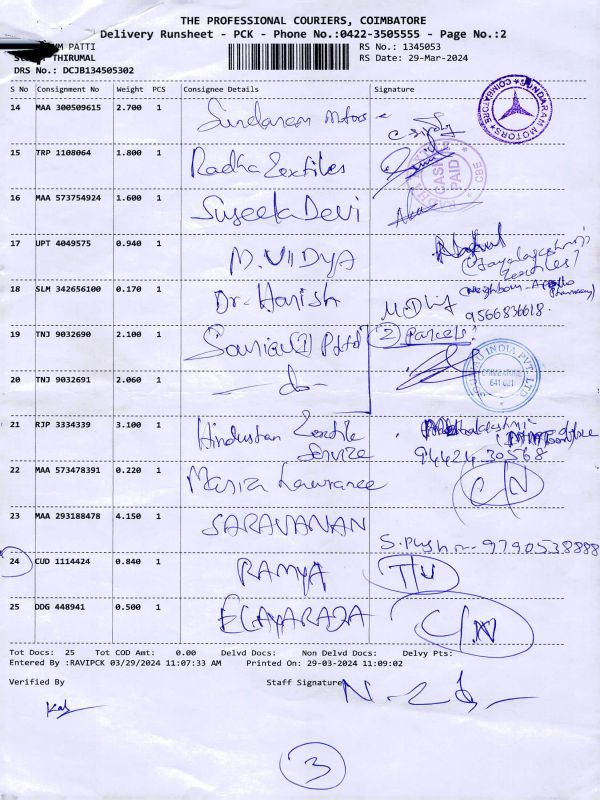 THE PROFESSIONAL COURIERS, COIMBATORE
Delivery Runsheet - PCK - Phone No.:0422-3505555 - Page No.:2
PATTI
THIRUMAL
RS No.: 1345053
RS Date: 29-Mar-2024
DRS No.: DCJB134505302
S No Consignment No Weight PCS Consignee Details Signature
14 MAA 300509615 2.700 1 Sundaram Motors
SUNDARAM MOTORS COIMBATORE
15 TRP 1108064 1.800 1 Radha Textiles
CASH PAID CBE
16 MAA 573754924 1.600 1 Suseela Devi
17 UPT 4049575 0.940 1 M. VIDYA
18 SLM 342656100 0.170 1 Dr. Harish
(Neighbour - Apollo Pharmacy)
9566836618.
19 TNJ 9032690 2.100 1
2 Parcels
20 TNJ 9032691 2.060 1 — do —
INDIA PVT. LTD
21 RJP 3334339 3.100 1 Hindustan Textile
Service
94424 30568
22 MAA 573478391 0.220 1 Maria Lawrance
C/N
23 MAA 293188478 4.150 1 SARAVANAN
9790538888
24 CUD 1114424 0.840 1 RAMYA
25 DDG 448941 0.500 1 ELAYARAJA C/N
Tot Docs: 25 Tot COD Amt: 0.00 Delvd Docs: Non Delvd Docs: Delvy Pts:
Entered By :RAVIPCK 03/29/2024 11:07:33 AM Printed On: 29-03-2024 11:09:02
Verified By Staff Signature
3